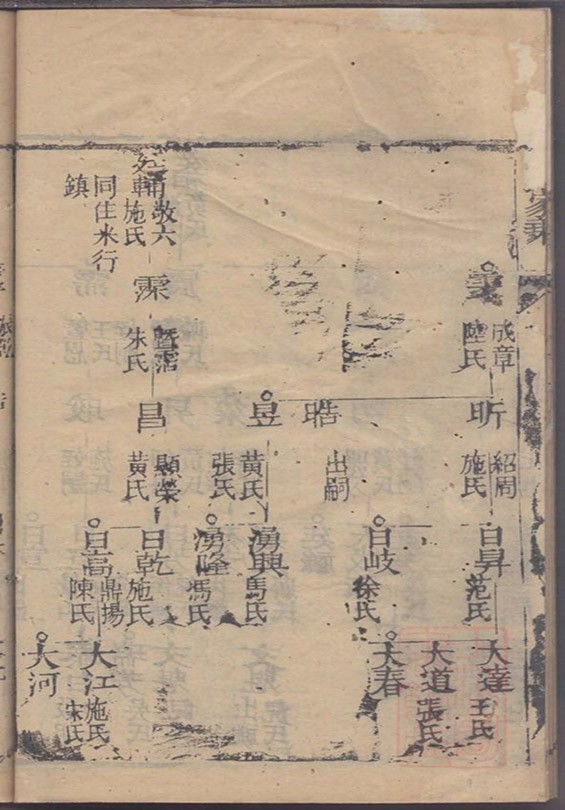 家乘
成章
陸氏
敬六
輔施氏
同住米行
鎮
霂
暨霑
朱氏
昕
晧
昱
昌
紹周
施氏
出嗣
黄氏
張氏
顯榮
黄氏
日昇
范氏
日岐
徐氏
湧興
馬氏
湧隆
馮氏
日乾
施氏
日高
鼎揚
陳氏
大達
王氏
大道
張氏
大春
大江
施氏
宋氏
大河